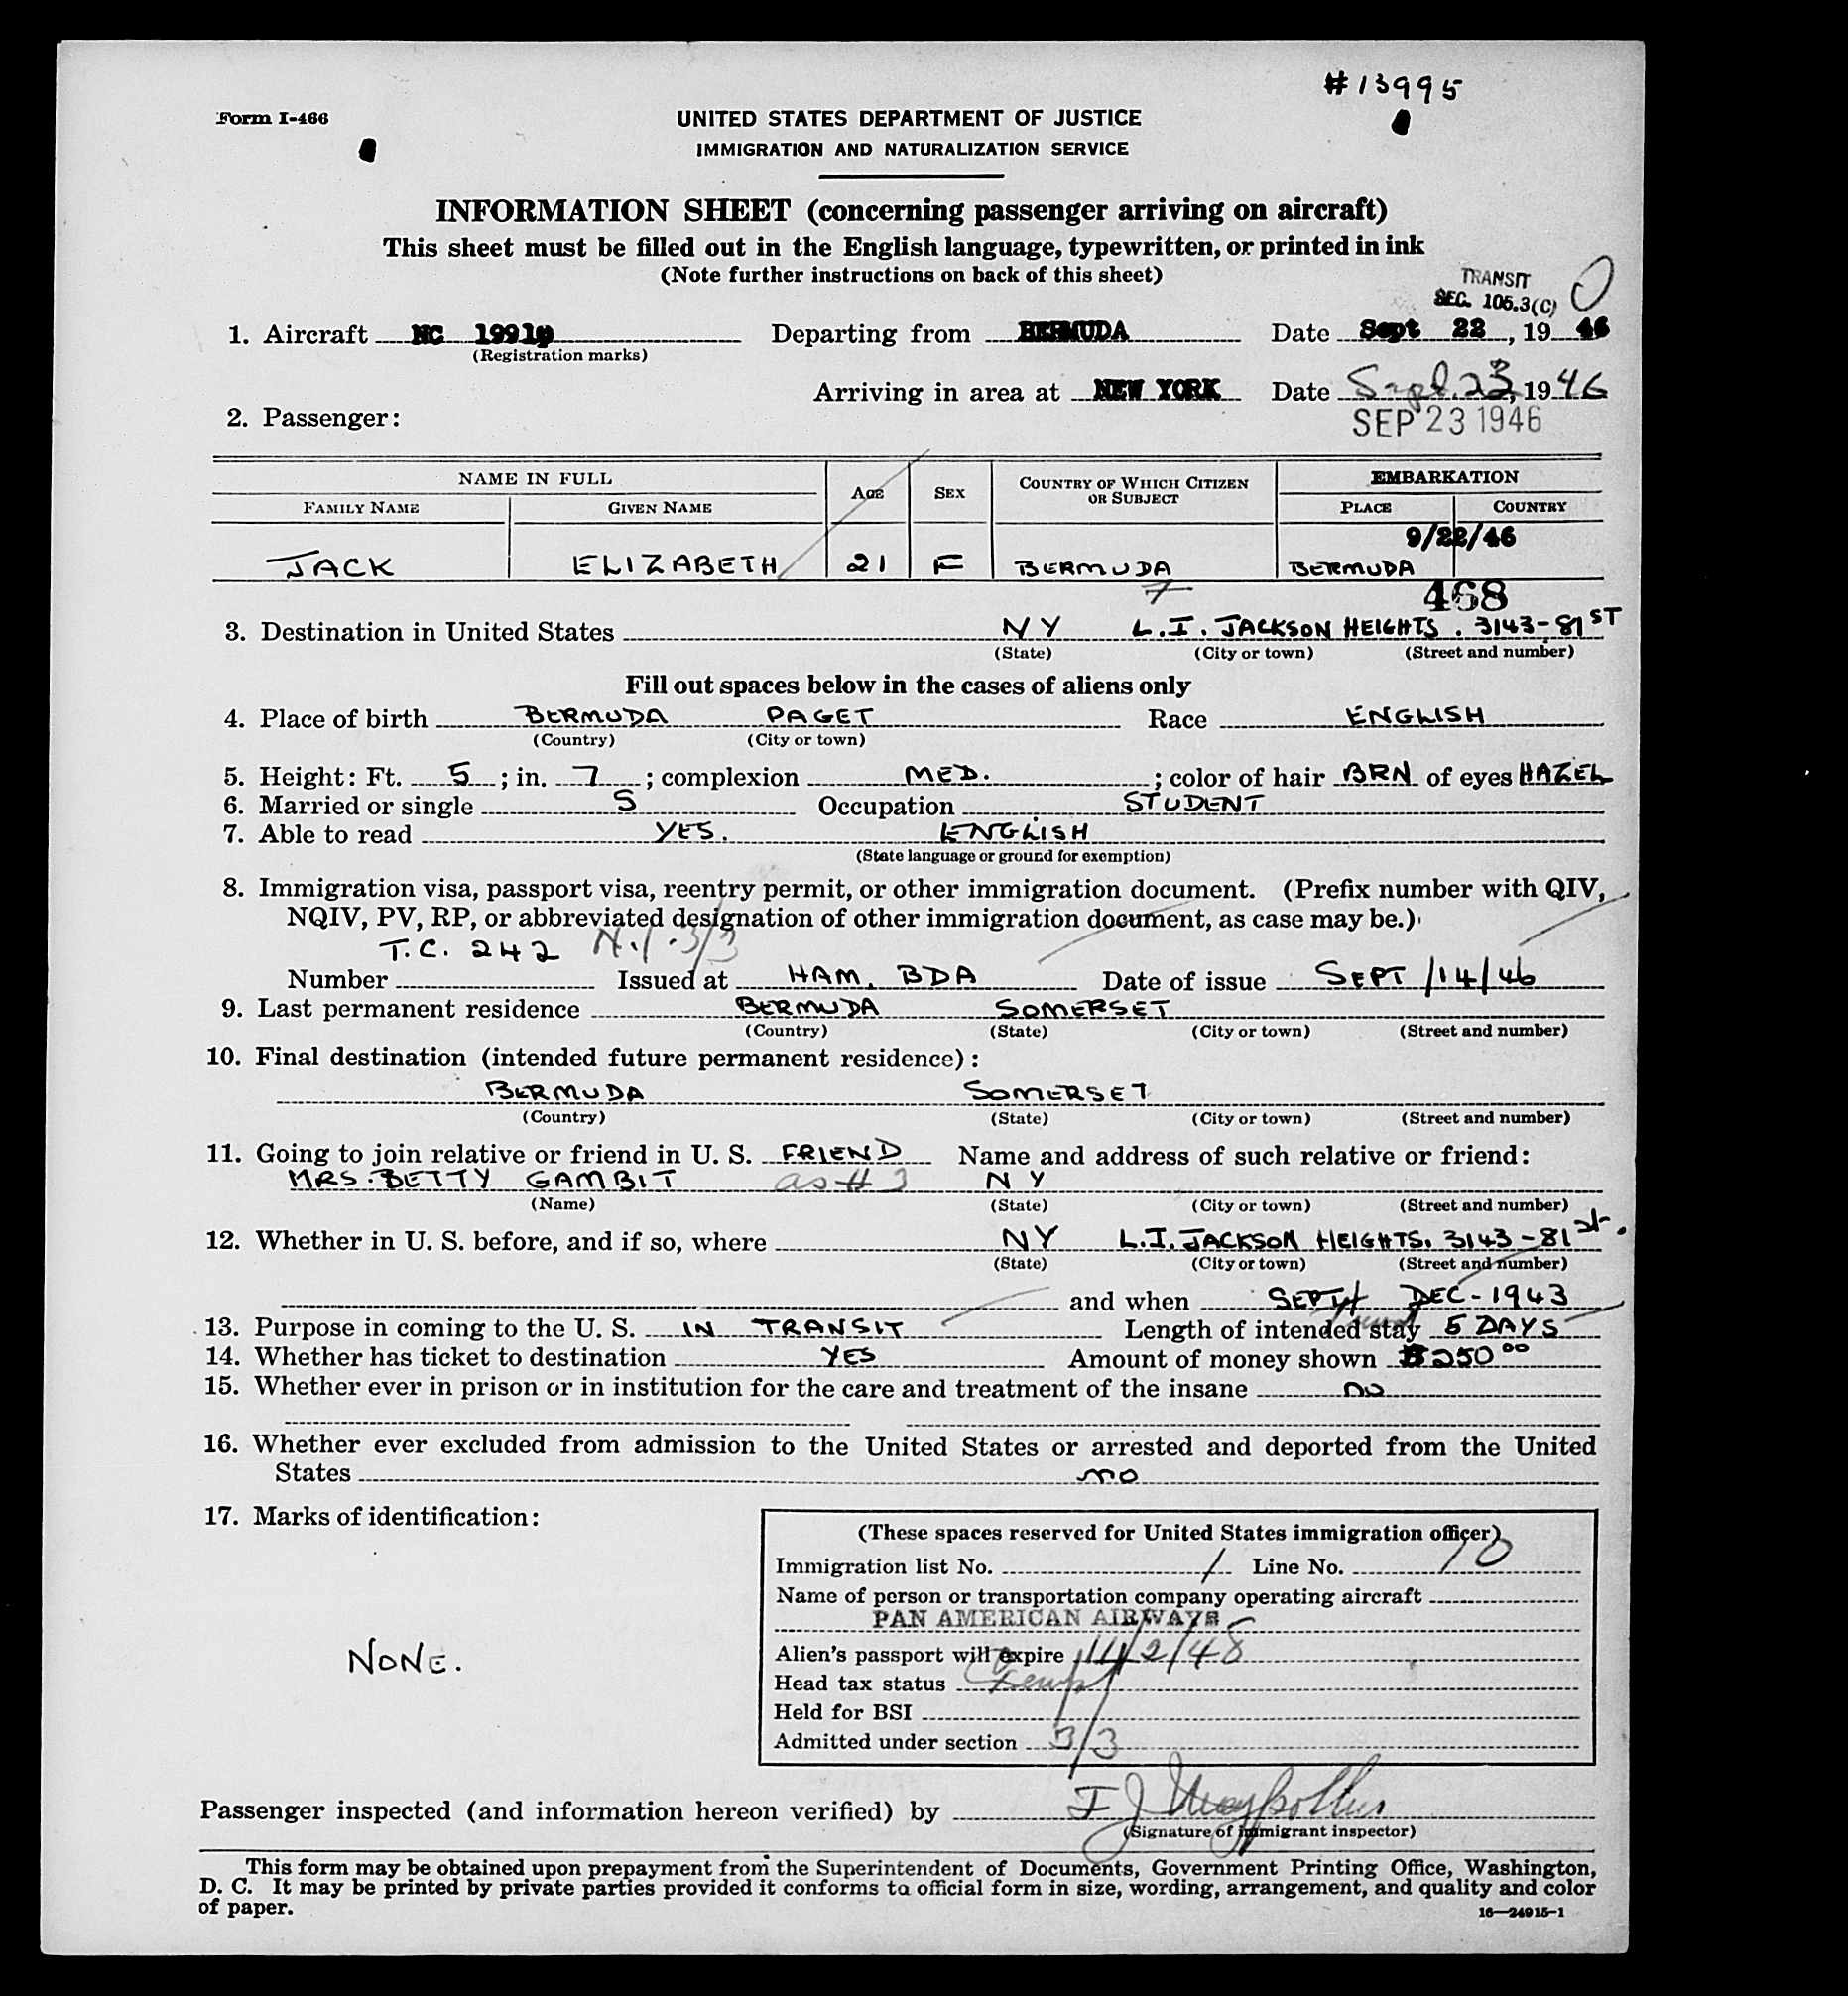 #13995
Form I-466
UNITED STATES DEPARTMENT OF JUSTICE
IMMIGRATION AND NATURALIZATION SERVICE
INFORMATION SHEET (concerning passenger arriving on aircraft)
This sheet must be filled out in the English language, typewritten, or printed in ink
(Note further instructions on back of this sheet)
TRANSIT
SEC. 105.3(C)
1. Aircraft NC Departing from BERMUDA Date Sept 22, 19 46
(Registration marks)
Arriving in area at NEW YORK Date Sept. 23, 19 46
2. Passenger: SEP 23 1946
NAME IN FULL AGE SEX COUNTRY OF WHICH CITIZEN OR SUBJECT EMBARKATION
FAMILY NAME GIVEN NAME PLACE COUNTRY
9/22/46
JACK ELIZABETH 21 F BERMUDA BERMUDA
7 468
3. Destination in United States NY L.I. JACKSON HEIGHTS. 3143-81ST
(State) (City or town) (Street and number)
Fill out spaces below in the cases of aliens only
4. Place of birth BERMUDA PAGET Race ENGLISH
(Country) (City or town)
5. Height: Ft. 5; in. 7; complexion MED.; color of hair BRN of eyes HAZEL
6. Married or single S Occupation STUDENT
7. Able to read YES. ENGLISH
(State language or ground for exemption)
8. Immigration visa, passport visa, reentry permit, or other immigration document. (Prefix number with QIV,
NQIV, PV, RP, or abbreviated designation of other immigration document, as case may be.)
T.C. 242 3/3
Number Issued at HAM. BDA Date of issue SEPT /14/46
9. Last permanent residence BERMUDA SOMERSET
(Country) (State) (City or town) (Street and number)
10. Final destination (intended future permanent residence):
BERMUDA SOMERSET
(Country) (State) (City or town) (Street and number)
11. Going to join relative or friend in U. S. FRIEND Name and address of such relative or friend:
MRS. BETTY GAMBIT as #3 NY
(Name) (State) (City or town) (Street and number)
12. Whether in U. S. before, and if so, where NY L.I. JACKSON HEIGHTS. 3143-81st.
(State) (City or town) (Street and number)
and when SEPT DEC-1943
13. Purpose in coming to the U. S. IN TRANSIT Length of intended stay 5 DAYS
14. Whether has ticket to destination YES Amount of money shown $250.00
15. Whether ever in prison or in institution for the care and treatment of the insane no
16. Whether ever excluded from admission to the United States or arrested and deported from the United
States no
17. Marks of identification:
NONE.
(These spaces reserved for United States immigration officer)
Immigration list No. 1 Line No. 10
Name of person or transportation company operating aircraft
PAN AMERICAN AIRWAYS
Alien's passport will expire
Head tax status Exempt
Held for BSI
Admitted under section 3/3
Passenger inspected (and information hereon verified) by
(Signature of immigrant inspector)
This form may be obtained upon prepayment from the Superintendent of Documents, Government Printing Office, Washington,
D. C. It may be printed by private parties provided it conforms to official form in size, wording, arrangement, and quality and color
of paper.
16—24915-1